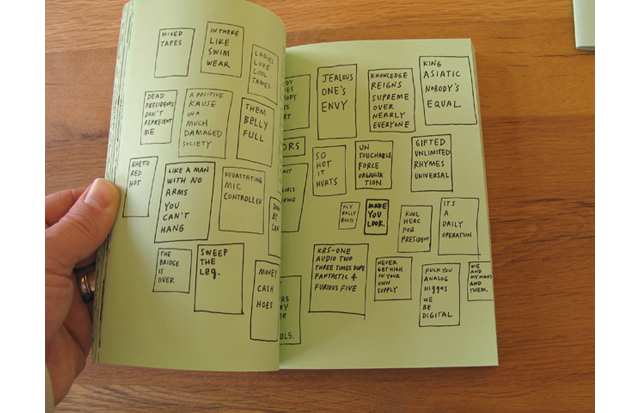 MIXED
TAPES
IN THERE
LIKE
SWIM
WEAR
LADIES
LOVE
COOL
TAMES
DEAD
PRESIDENTS
DON'T
REPRESENT
ME
A POSITIVE
KAUSE
IN A
MUCH
DAMAGED
SOCIETY
THEM
BELLY
FULL
GHETTO
RED
HOT
LIKE A MAN
WITH NO
ARMS
YOU
CAN'T
HANG
DEVASTATING
MIC
CONTROLLER
THE
BRIDGE
IS OVER
SWEEP
THE
LEG.
MONEY
CASH
HOES
JEALOUS
ONE'S
ENVY
KNOWLEDGE
REIGNS
SUPREME
OVER
NEARLY
EVERYONE
KING
ASIATIC
NOBODY'S
EQUAL
SO
HOT
IT
HURTS
UN
TOUCHABLE
FORCE
ORGANIZA
TION
GIFTED
UNLIMITED
RHYMES
UNIVERSAL
MADE
YOU
LOOK.
KOOL
HERC
FOR
PRESIDENT
IT'S
A
DAILY
OPERATION
KRS-ONE
AUDIO TWO
THREE TIMES DOPE
FANTASTIC 4
FURIOUS FIVE
NEVER
GET HIGH
ON YOUR
OWN
SUPPLY
FUCK YOU
ANALOG
NIGGAS
WE
BE
DIGITAL
ME
AND
MY MANS
AND
THEM.